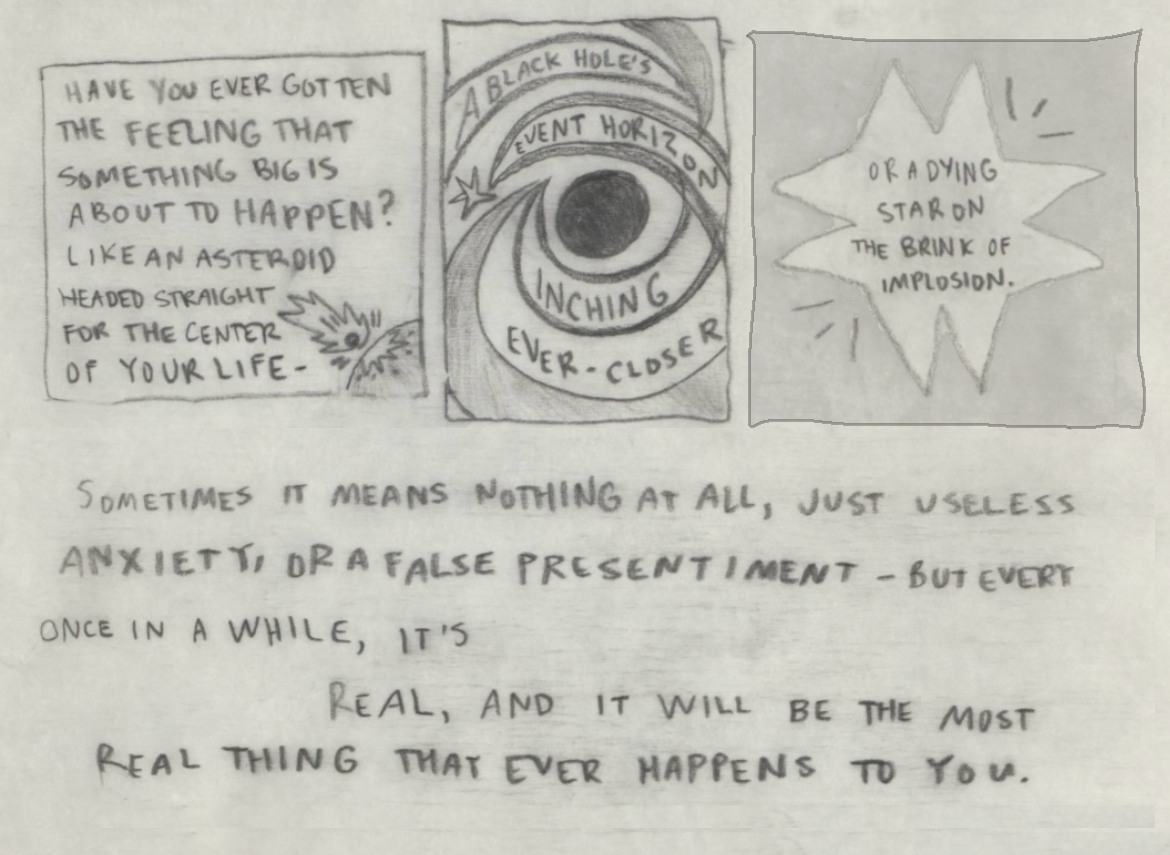 HAVE YOU EVER GOTTEN
THE FEELING THAT
SOMETHING BIG IS
ABOUT TO HAPPEN?
LIKE AN ASTEROID
HEADED STRAIGHT
FOR THE CENTER
OF YOUR LIFE-
A BLACK HOLE'S
EVENT HORIZON
INCHING
EVER-CLOSER
OR A DYING
STAR ON
THE BRINK OF
IMPLOSION.
SOMETIMES IT MEANS NOTHING AT ALL, JUST USELESS
ANXIETY, OR A FALSE PRESENTIMENT - BUT EVERY
ONCE IN A WHILE, IT'S
REAL, AND IT WILL BE THE MOST
REAL THING THAT EVER HAPPENS TO YOU.